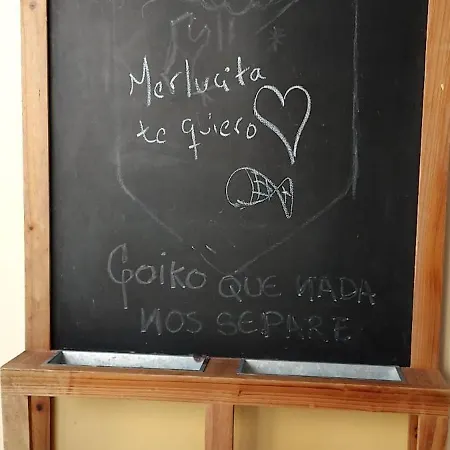 Merlucita
te quiero
Goiko QUE NADA
NOS SEPARE